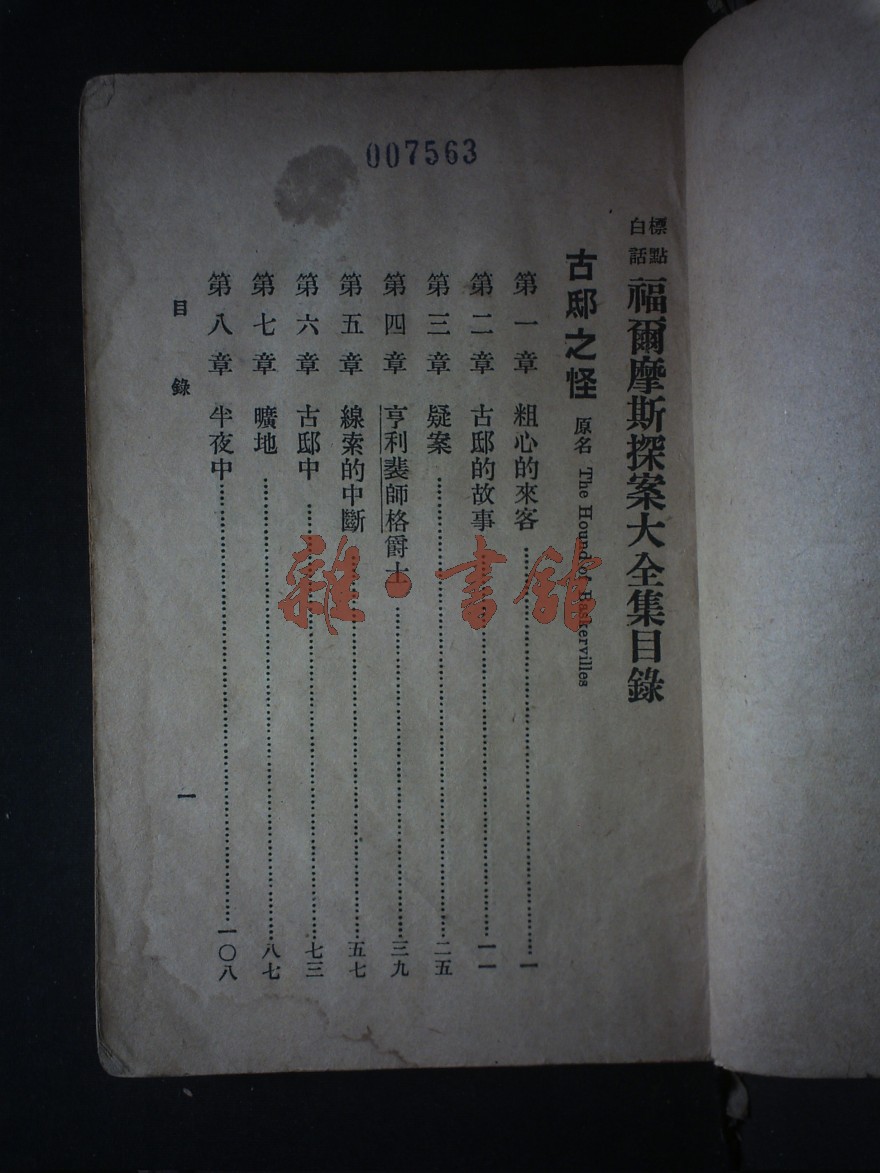 007563
標點
白話
福爾摩斯探案大全集目錄
古邸之怪 原名 The Hound of Baskervilles
第一章 粗心的來客……一
第二章 古邸的故事……一一
第三章 疑案……二五
第四章 亨利裴師格爵士……三九
第五章 線索的中斷……五七
第六章 古邸中……七三
第七章 曠地……八七
第八章 半夜中……一〇八
目錄
一
雜·書館